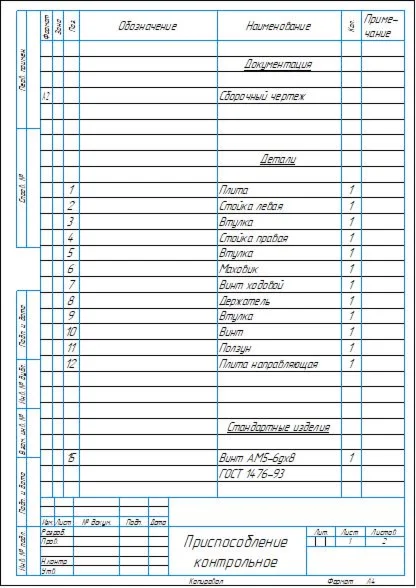 Формат
Зона
Поз.
Обозначение
Наименование
Кол.
Приме-
чание
Перв. примен.
Документация
А2 Сборочный чертеж
Справ. №
Детали
1 Плита 1
2 Стойка левая 1
3 Втулка 1
4 Стойка правая 1
5 Втулка 1
6 Маховик 1
7 Винт ходовой 1
8 Держатель 1
9 Втулка 1
10 Винт 1
11 Ползун 1
12 Плита направляющая 1
Подп. и дата
Инв. № дубл.
Взам. инв. №
Стандартные изделия
15 Винт АМ5-6gх8 1
ГОСТ 1476-93
Подп. и дата
Инв. № подл.
Изм. Лист № докум. Подп. Дата
Разраб.
Пров.
Н.контр.
Утв.
Приспособление
контрольное
Лит. Лист Листов
1 2
Копировал Формат А4